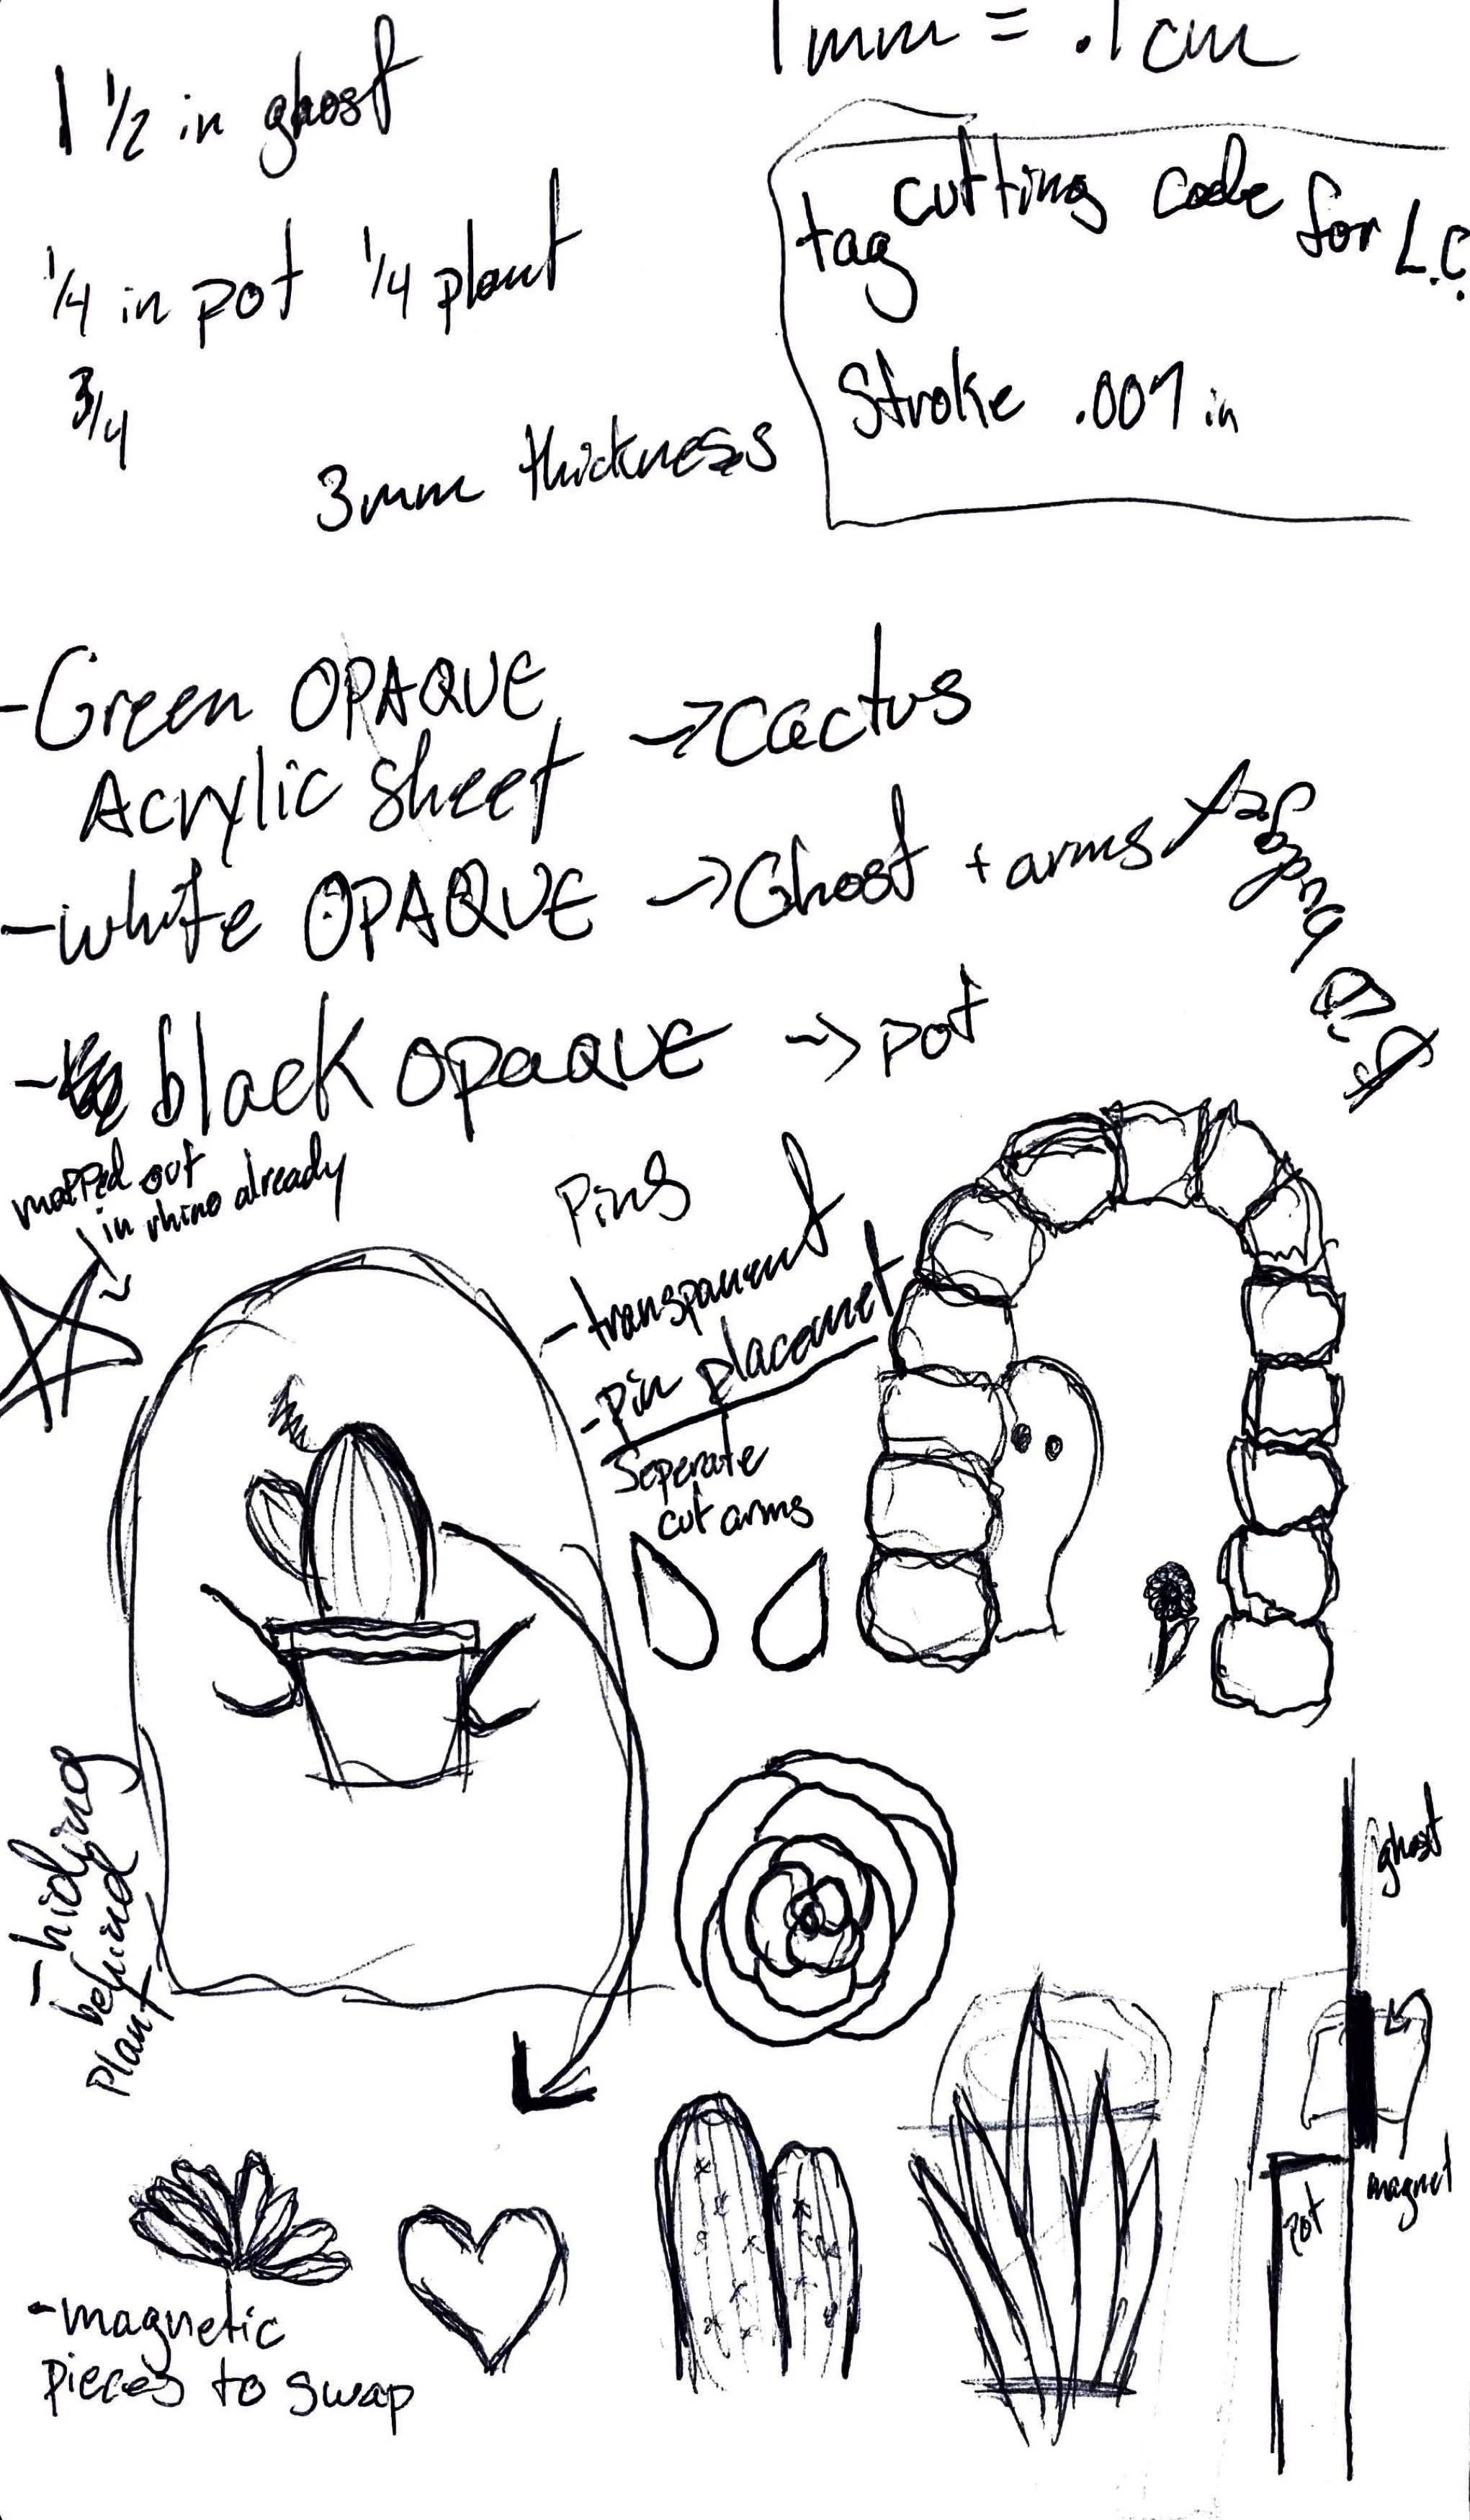 1mm = .1cm
1 1/2 in ghost
1/4 in pot 1/4 plant
3/4
3mm thickness
tag cutting code for L.C.
Stroke .007 in
-Green OPAQUE
Acrylic sheet
->cactus
-white OPAQUE ->Ghost + arms
-black opaque -> pot
mapped out
in rhino already
Pins
- transparent
- pin placamet
Seperate
cut arms
- hiding
behind
plant
ghost
magnet
pot
-magnetic
pieces to swap